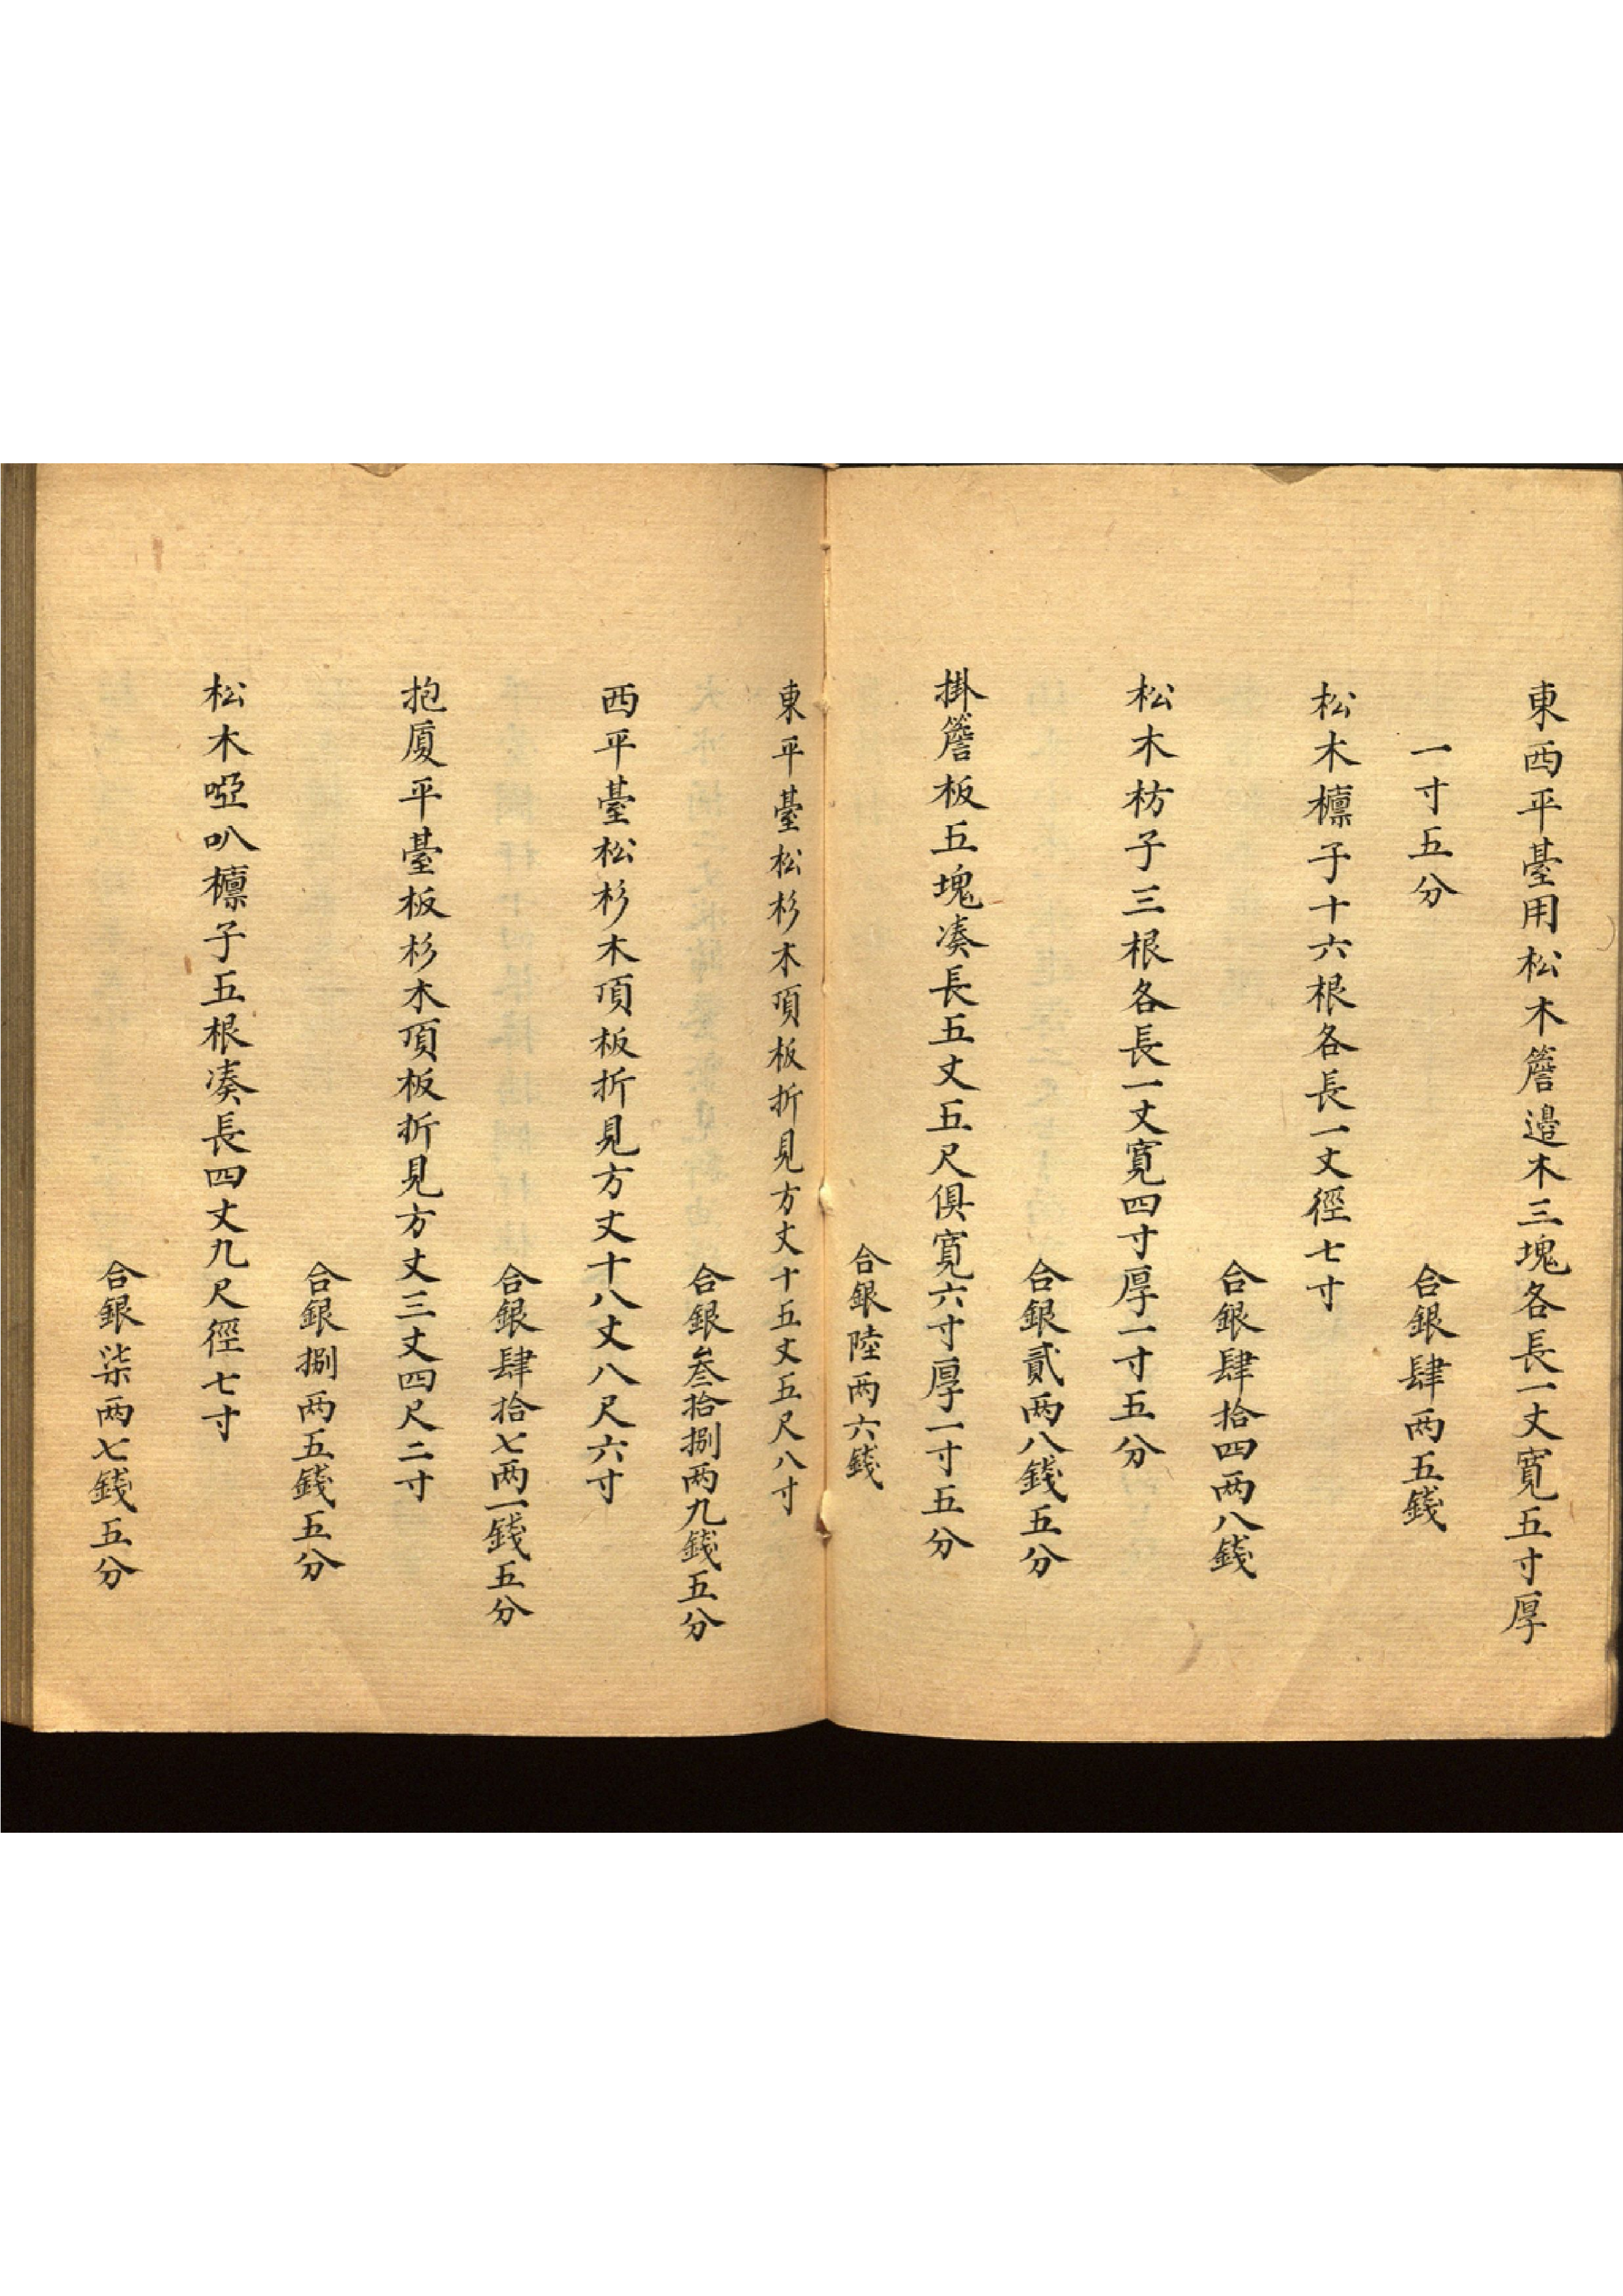 東西平臺用松木簷邉木三塊各長一丈寬五寸厚
一寸五分
合銀肆两五錢
松木檩子十六根各長一丈徑七寸
合銀肆拾四两八錢
松木枋子三根各長一丈寬四寸厚一寸五分
合銀貳两八錢五分
掛簷板五塊凑長五丈五尺俱寬六寸厚一寸五分
合銀陸两六錢
東平臺松杉木頂板折見方丈十五丈五尺八寸
合銀叁拾捌两九錢五分
西平臺松杉木頂板折見方丈十八丈八尺六寸
合銀肆拾七两一錢五分
抱厦平臺板杉木頂板折見方丈三丈四尺二寸
合銀捌两五錢五分
松木啞叭檩子五根凑長四丈九尺徑七寸
合銀柒两七錢五分